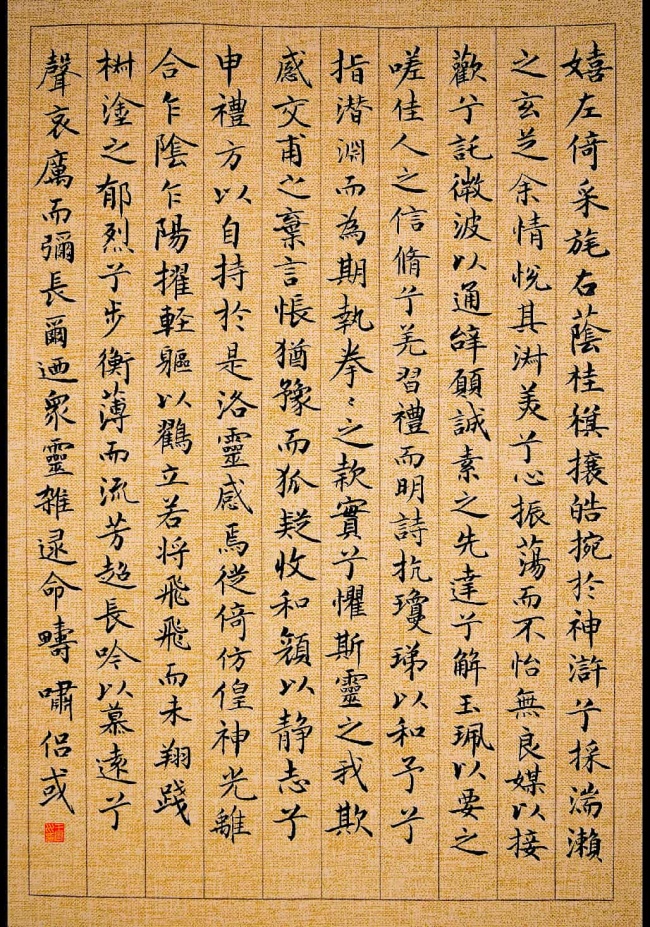 嬉左倚采旄右蔭桂旗攘皓捥於神滸兮採湍瀨
之玄芝余情悅其淑美兮心振蕩而不怡無良媒以接
歡兮託微波以通辭願誠素之先達兮解玉珮以要之
嗟佳人之信脩兮羌習禮而明詩抗瓊珶以和予兮
指潛淵而為期執拳〻之款實兮懼斯靈之我欺
感交甫之棄言悵猶豫而狐疑收和顏以靜志兮
申禮方以自持於是洛靈感焉徙倚仿偟神光離
合乍陰乍陽擢輕軀以鶴立若將飛飛而未翔踐
樹塗之郁烈兮步衡薄而流芳超長吟以慕遠兮
聲哀厲而彌長爾迺眾靈雜逯命疇嘯侶或